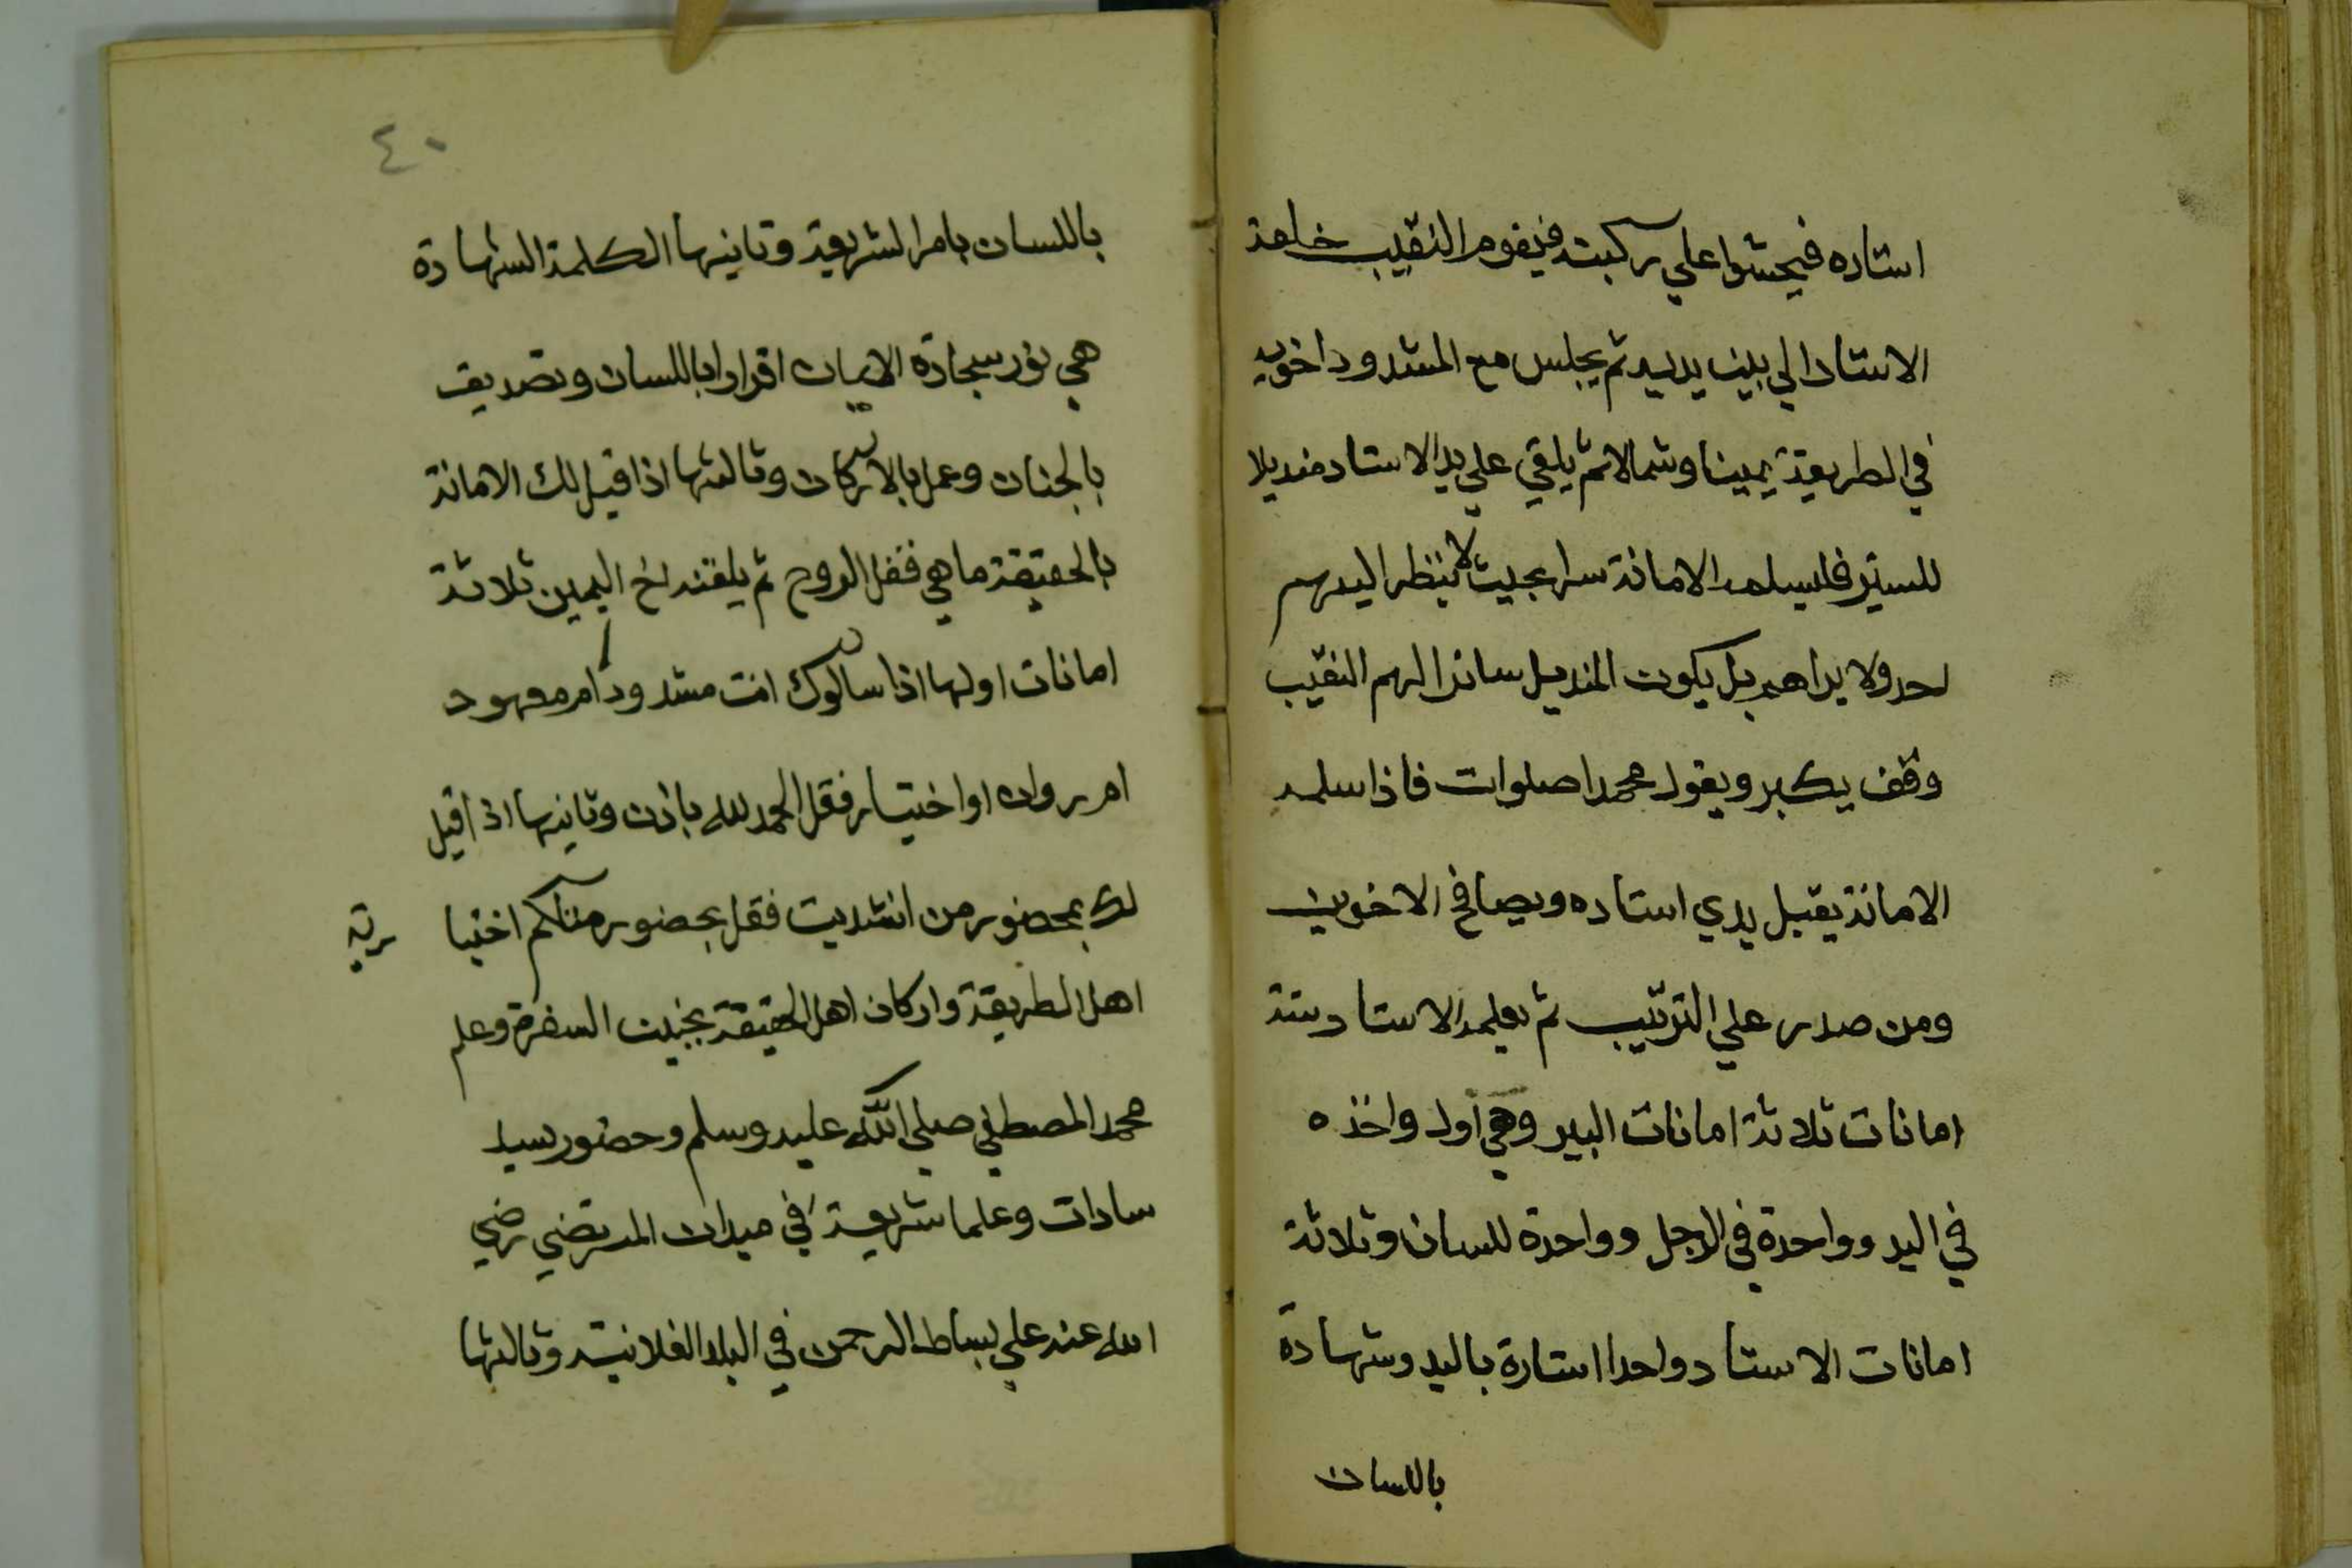 استاده فيجشوا علي ركبته فيقوم النقيب خلعة
الاستاد الي بين يديه ثم يجلس مع المشدود اخويه
في الطريقة يمينا وشمالا ثم يلقي علي يد الاستاد منديلا
للستر فليسلمه الامانة سرا بحيث لا ينظر اليهم
احد ولا يراهم بل يكون المنديل ساترا لهم النقيب
وقف يكبر ويقول محمدا صلوات فاذا سلمه
الامانة يقبل يدي استاده ويصافح الاخوين
ومن صدر علي الترتيب ثم يعلمه الاستاد ستة
امانات ثلاثة امانات البير وهي اول واخذه
في اليد وواحدة في الرجل وواحدة للسان وثلاثة
امانات الاستاد واحدا استارة باليد وشهادة
باللسان
٤٠
باللسان بامر الشريعة وثانيها الكلمة الشهادة
هي نور سجادة الايمان اقرارا باللسان وتصديق
بالجنان وعمل بالاركان وثالثها اذا قيل لك الامانة
بالحقيقة ما هي فقل الروح ثم يلقنه اخ اليمين ثلاثة
امانات اولها اذا سالوك انت مشدود ام معهود
ام روان او اختيار فقل الحمد لله باذن وثانيها اذا قيل
لك بمحضور من انشديت فقل بحضور منكم اختيا رية
اهل الطريقة واركان اهل الحقيقة بخيت السفرة وعلم
محمد المصطفي صلي الله عليه وسلم وحضور سيد
سادات وعلما شريعة في ميدان المرتضي رضي
الله عنه علي بساط الرحمن في البلد الفلانية وثالثها